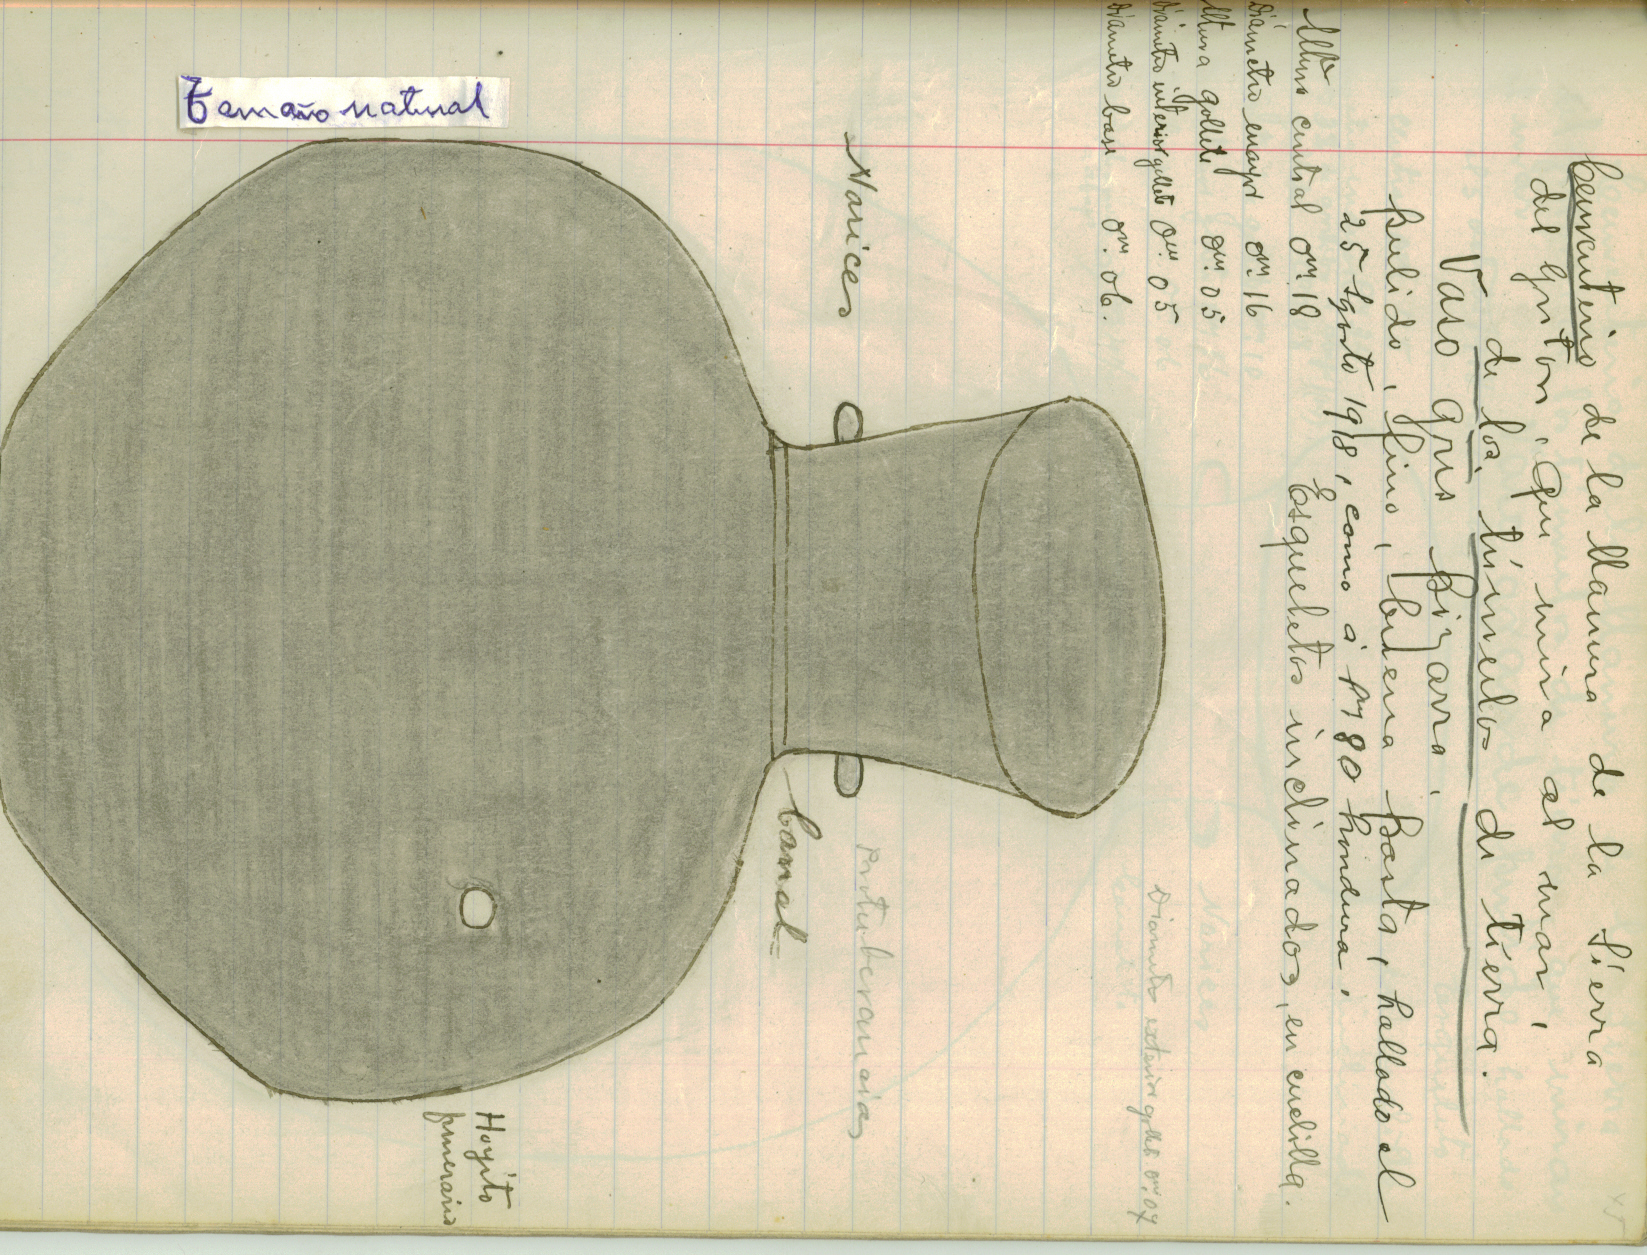 Cementerio de la llanura de la Sierra
del Gritón, que mira al mar,
de los túmulos de tierra.
Vaso gris pizarra,
pulido, fino, buena pasta, hallado el
25 Agosto 1918, como á 1m80 hondura.
Esqueletos inclinados, en cuclilla.
Altura central 0m.18
Diámetro mayor 0m.16
Altura gollete 0m.05
Diámetro interior gollete 0m.05
Diámetro exterior gollete 0m.07
Diámetro base 0m.06.
Narices
Protuberancias
Canal
Hoyito
funerario
Tamaño natural